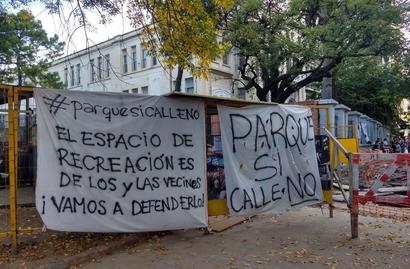 #parquesiCALLENO
EL ESPACIO DE
RECREACIÓN ES
DE LOS y LAS VECINOS
¡VAMOS A DEFENDERLO!
PARQUE
SI
CALLE NO